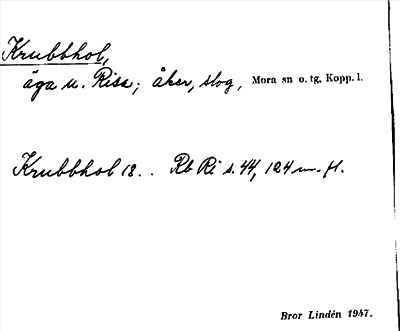 Krubbhol,
äga u. Risa; åker, slog, Mora sn o. tg, Kopp. l.
Krubbhol 18.. Rb Ri s. 44, 124 m. fl.
Bror Lindén 1947.